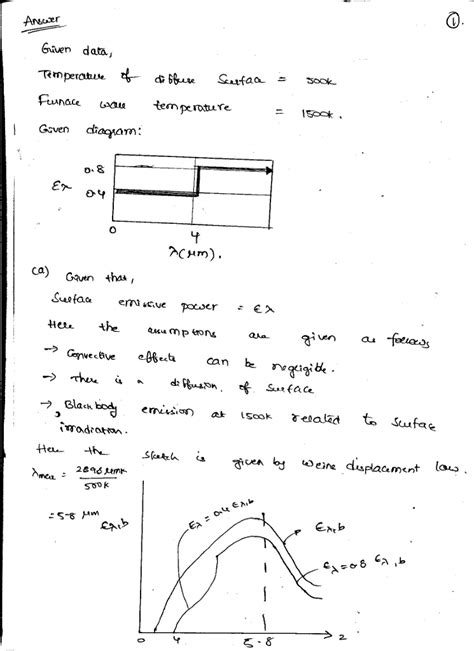 Answer
①.
Given data,
Temperature of diffuse Surface = 500k
Furnace wall temperature = 1500k.
Given diagram:
0.8
Ελ 0.4
0 4
λ(μm).
(a) Given that,
Surface emissive power = Ελ
Here the assumptions are given as follows
→ Convective effects can be negligible.
→ There is a diffusion of surface
→ Blackbody emission at 1500k related to surface
irradiation.
Here the sketch is given by Weins displacement law.
λmax = 2898 μmk
500k
= 5.8 μm
Ελ,b
Ελ = 0.4 Ελ,b
Ελ,b
Ελ = 0.8 Ελ,b
0 4 5.8 2